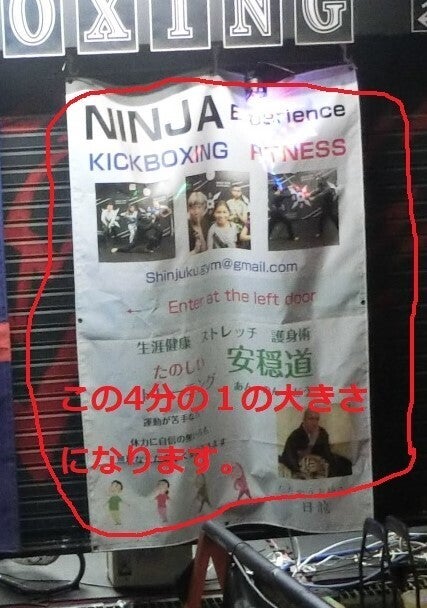 OXING
NINJA Experience
KICKBOXING FITNESS
Shinjukugym@gmail.com
← Enter at the left door
生涯健康 ストレッチ 護身術
たのしい
安穏道
この4分の１の大きさ
運動が苦手な
体力に自信の
になります。